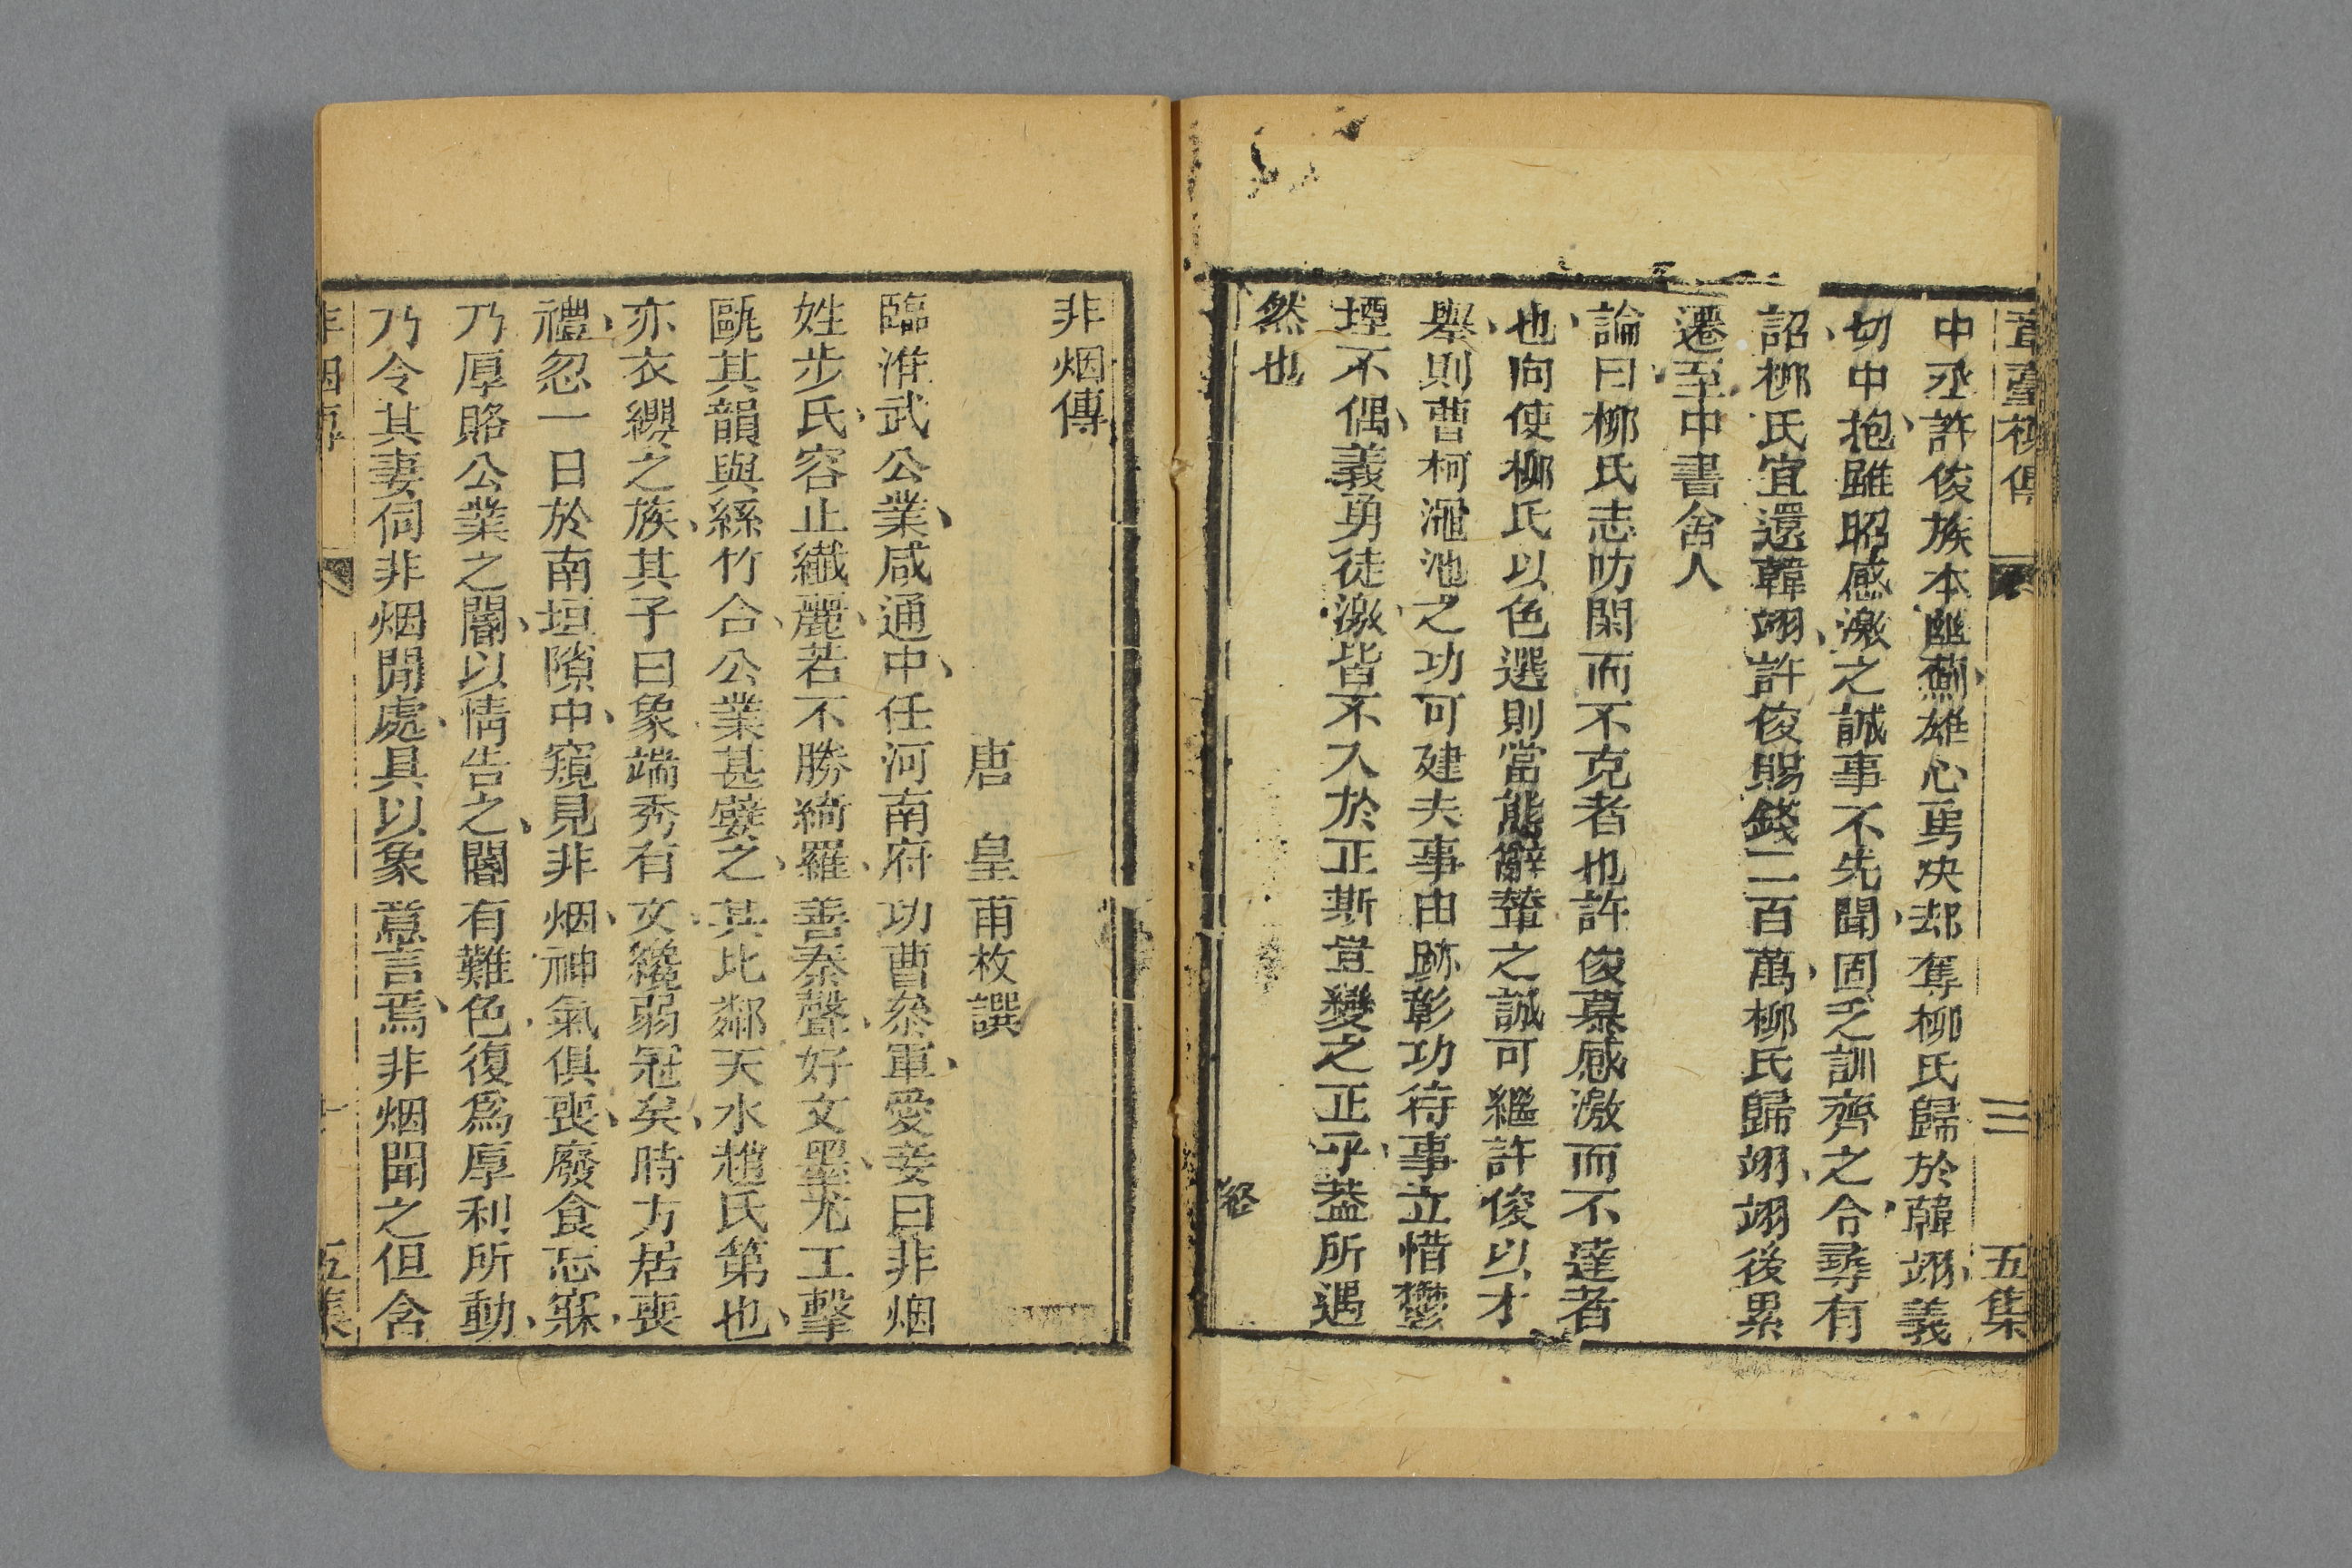 五集
三
中丞許俊族本幽薊雄心勇决却奪柳氏歸於韓翊義
切中抱雖昭感激之誠事不先聞固乏訓齊之令尋有
詔柳氏宜還韓翊許俊賜錢二百萬柳氏歸翊翊後累
遷至中書舍人
論曰柳氏志防閑而不克者也許俊慕感激而不達者
也向使柳氏以色選則當熊辭輦之誠可繼許俊以才
舉則曹柯澠池之功可建夫事由跡彰功待事立惜鬱
堙不偶義勇徒激皆不入於正斯豈變之正乎葢所遇
然也
終
非烟傳
唐 皇甫枚譔
臨淮武公業咸通中任河南府功曹叅軍愛妾曰非烟
姓步氏容止纖麗若不勝綺羅善秦聲好文墨尤工擊
甌其韻與絲竹合公業甚嬖之其比鄰天水趙氏第也
亦衣纓之族其子曰象端秀有文纔弱冠矣時方居喪
禮忽一日於南垣隙中窺見非烟神氣俱喪廢食忘寐
乃厚賂公業之閽以情告之閽有難色復爲厚利所動
乃令其妻伺非烟閒處具以象意言焉非烟聞之但含